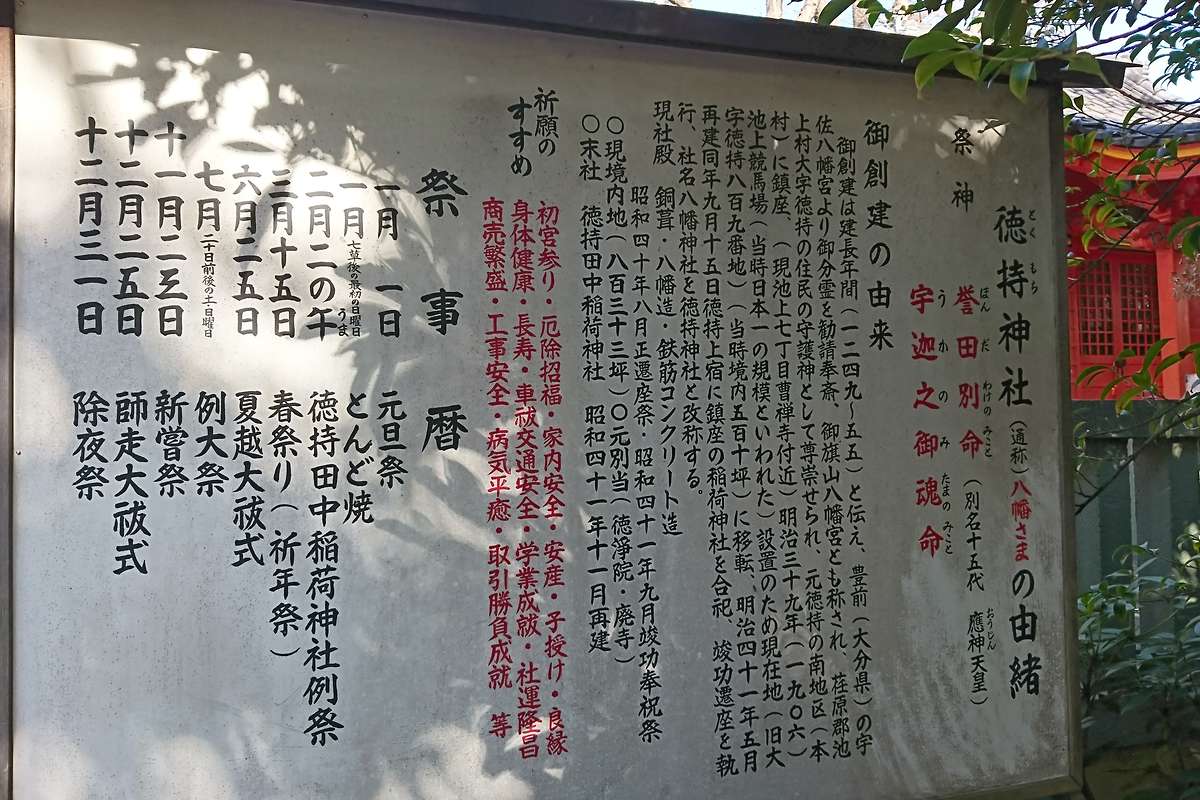 徳持神社（通称）八幡さまの由緒
とく もち
祭神
誉田別命（別名十五代 應神天皇）
ほん だ わけの みこと おうじん
宇迦之御魂命
う か の み たまの みこと
御創建の由来
御創建は建長年間（一二四九～五五）と伝え、豊前（大分県）の宇
佐八幡宮より御分霊を勧請奉斎、御旗山八幡宮とも称され、荏原郡池
上村大字徳持の住民の守護神として尊崇せられ、元徳持の南地区（本
村）に鎮座、（現池上七丁目曹禅寺付近）明治三十九年（一九〇六）
池上競馬場（当時日本一の規模といわれた）設置のため現在地（旧大
字徳持八百九番地）（当時境内五百十坪）に移転、明治四十一年五月
再建同年九月十五日徳持上宿に鎮座の稲荷神社を合祀、竣功遷座を執
行、社名八幡神社を徳持神社と改称する。
現社殿 銅葺・八幡造・鉄筋コンクリート造
昭和四十年八月正遷座祭・昭和四十一年九月竣功奉祝祭
〇現境内地（八百三十三坪）〇元別当（徳浄院・廃寺）
〇末社 徳持田中稲荷神社 昭和四十一年十一月再建
祈願の
すすめ
初宮参り・厄除招福・家内安全・安産・子授け・良縁
身体健康・長寿・車祓交通安全・学業成就・社運隆昌
商売繁盛・工事安全・病気平癒・取引勝負成就 等
祭事暦
一月 一日 元旦祭
一月 七草後の最初の日曜日 とんど焼
二月二の午 徳持田中稲荷神社例祭
うま
三月十五日 春祭り（祈年祭）
六月二五日 夏越大祓式
七月 二十日前後の土・日曜日 例大祭
十一月二三日 新嘗祭
十二月二五日 師走大祓式
十二月三一日 除夜祭